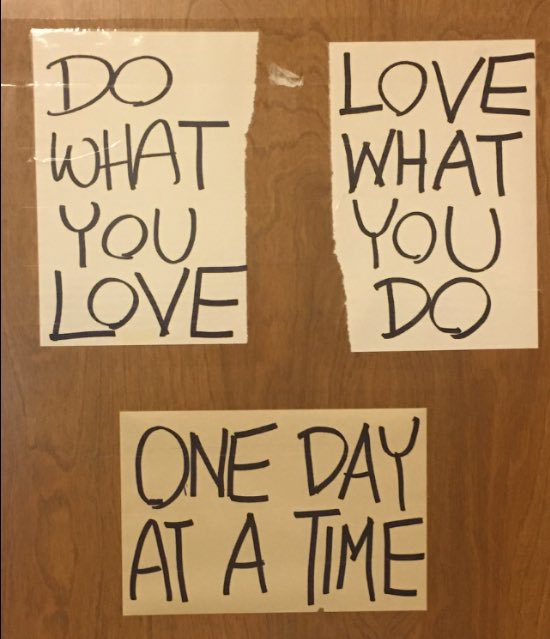 DO
WHAT
YOU
LOVE
LOVE
WHAT
YOU
DO
ONE DAY
AT A TIME